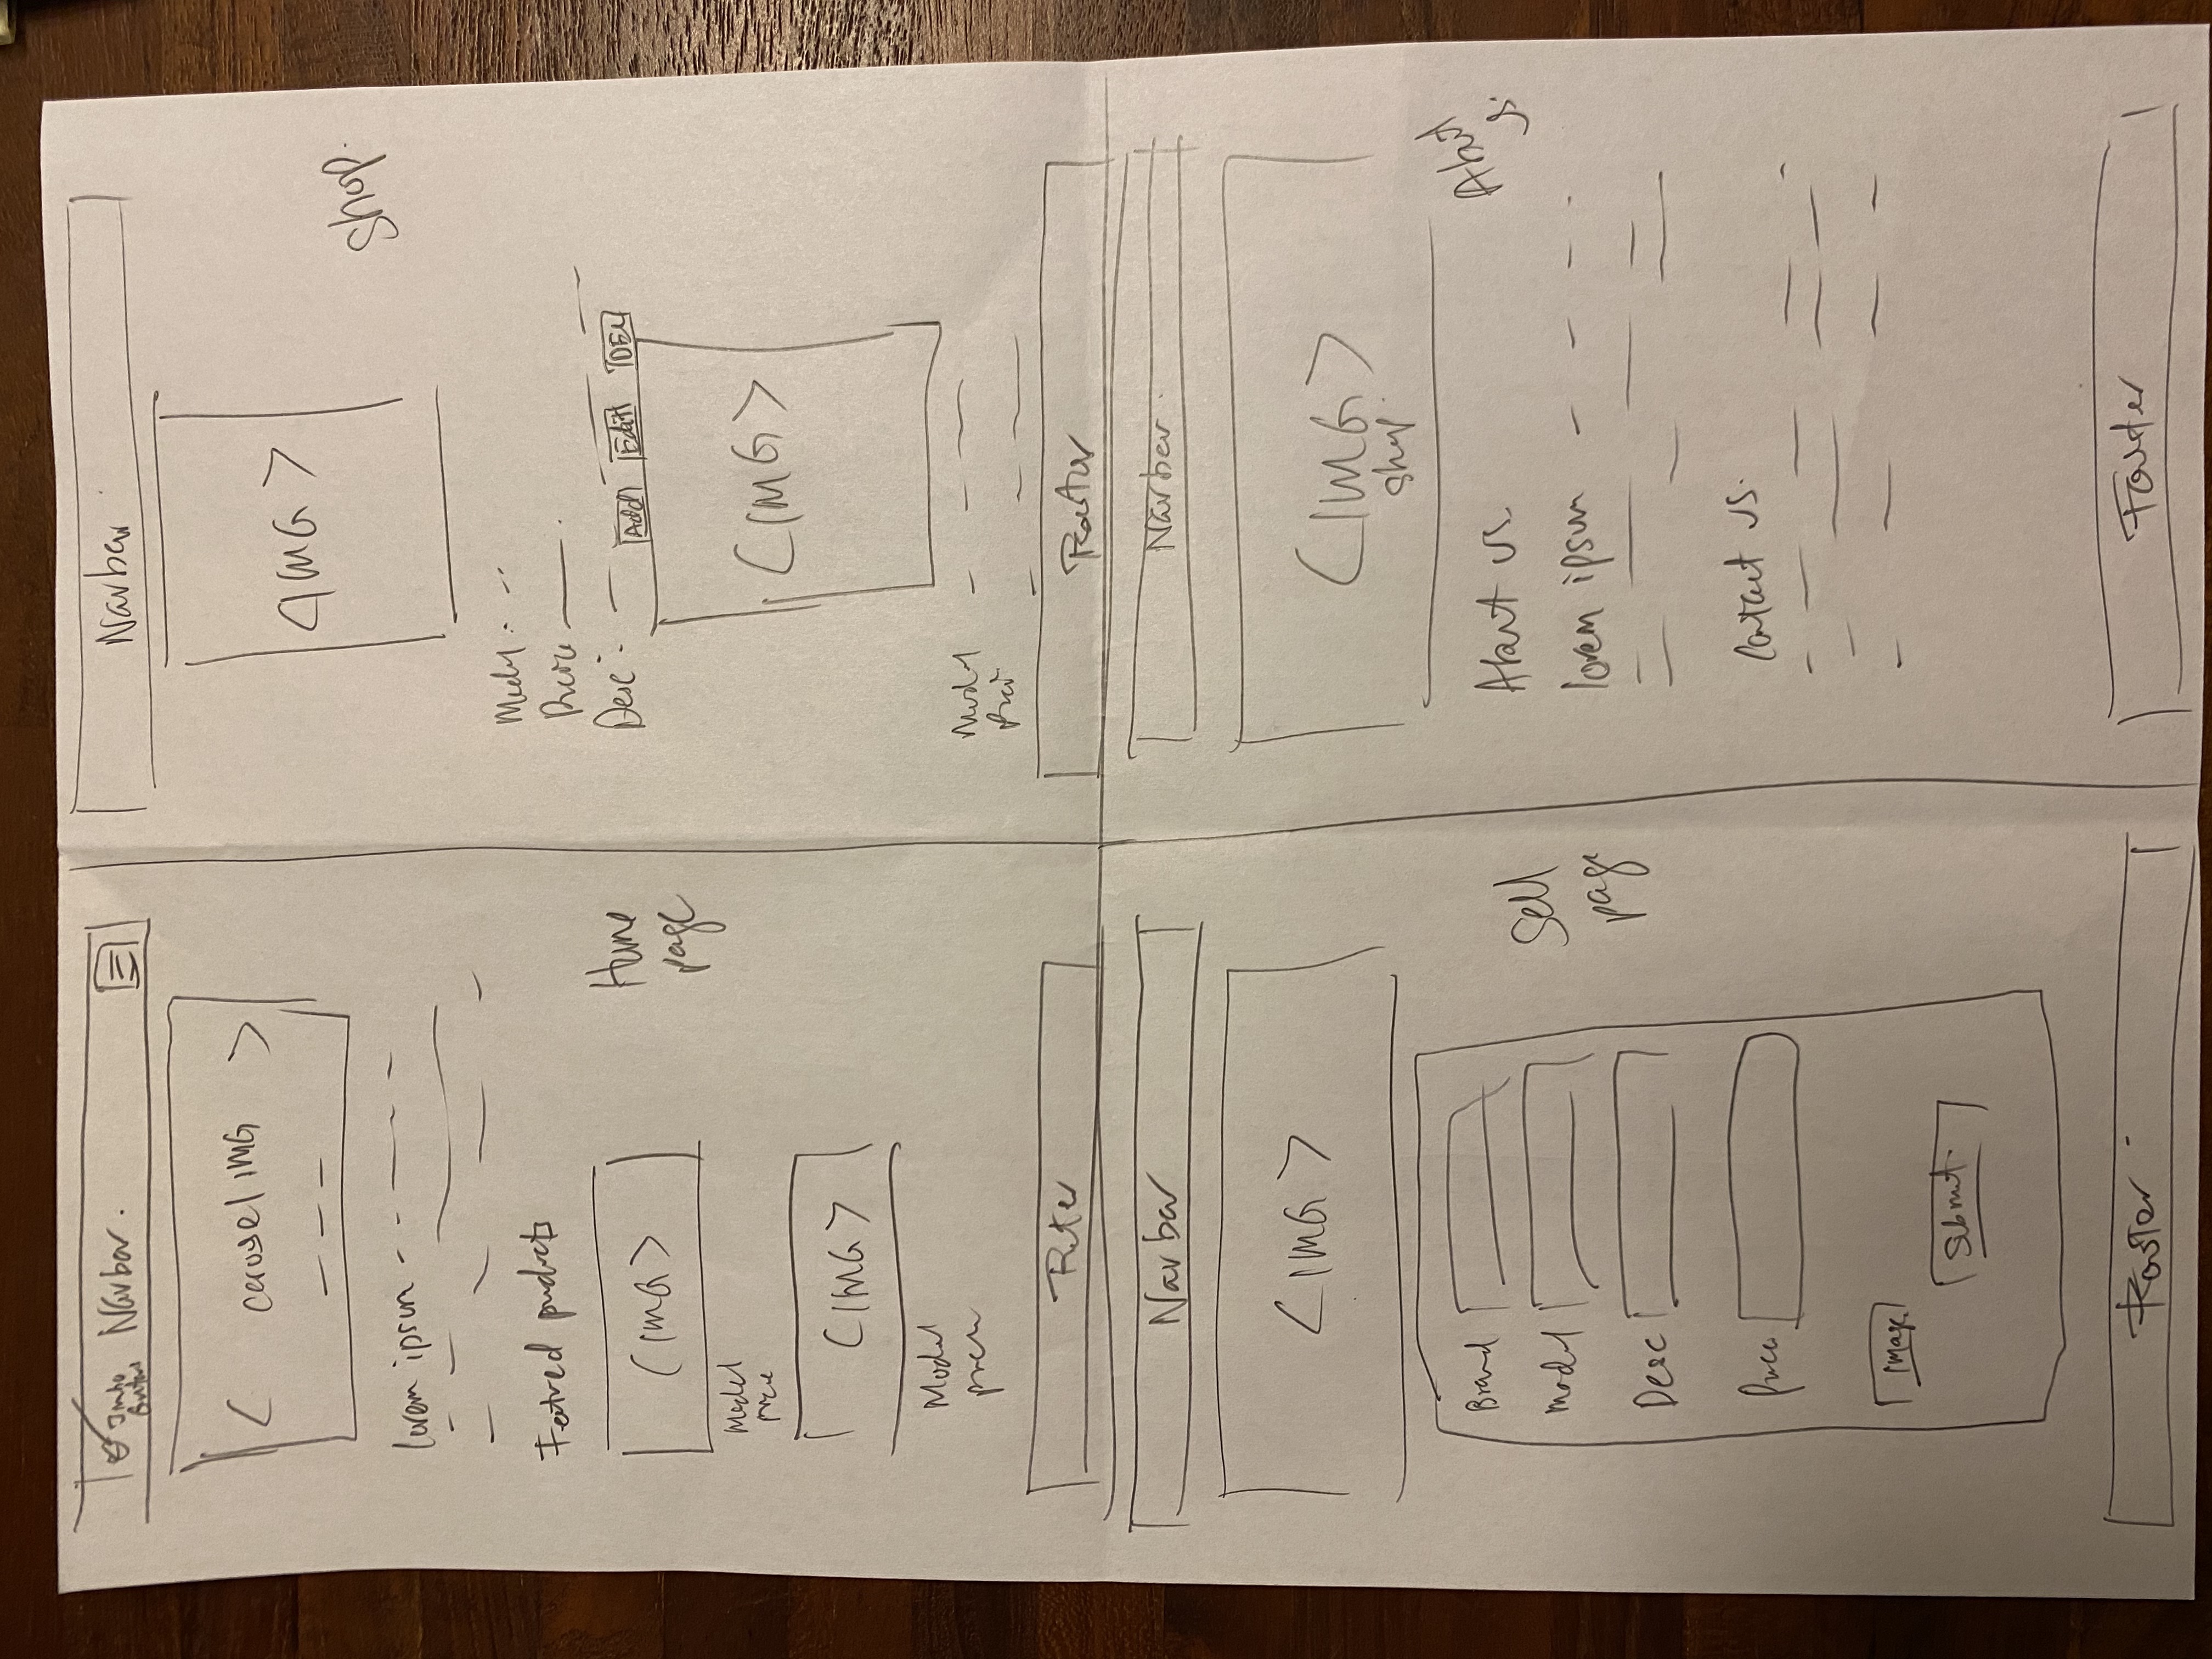 Navbar.
< carousel IMG >
lorem ipsum
Featured products
<IMG>
Model
price
<IMG>
Model
price
Home
page
Footer
Navbar
<IMG>
Shop.
Model:
Price
Desc:
Add Edit DEL
<IMG>
Model
Price
Footer
Navbar
<IMG>
Brand
Model
Desc
Price
Image
Submit
Sell
page
Footer
Navbar
<IMG>
Shop
About us
lorem ipsum
Contact us.
About
us.
Footer